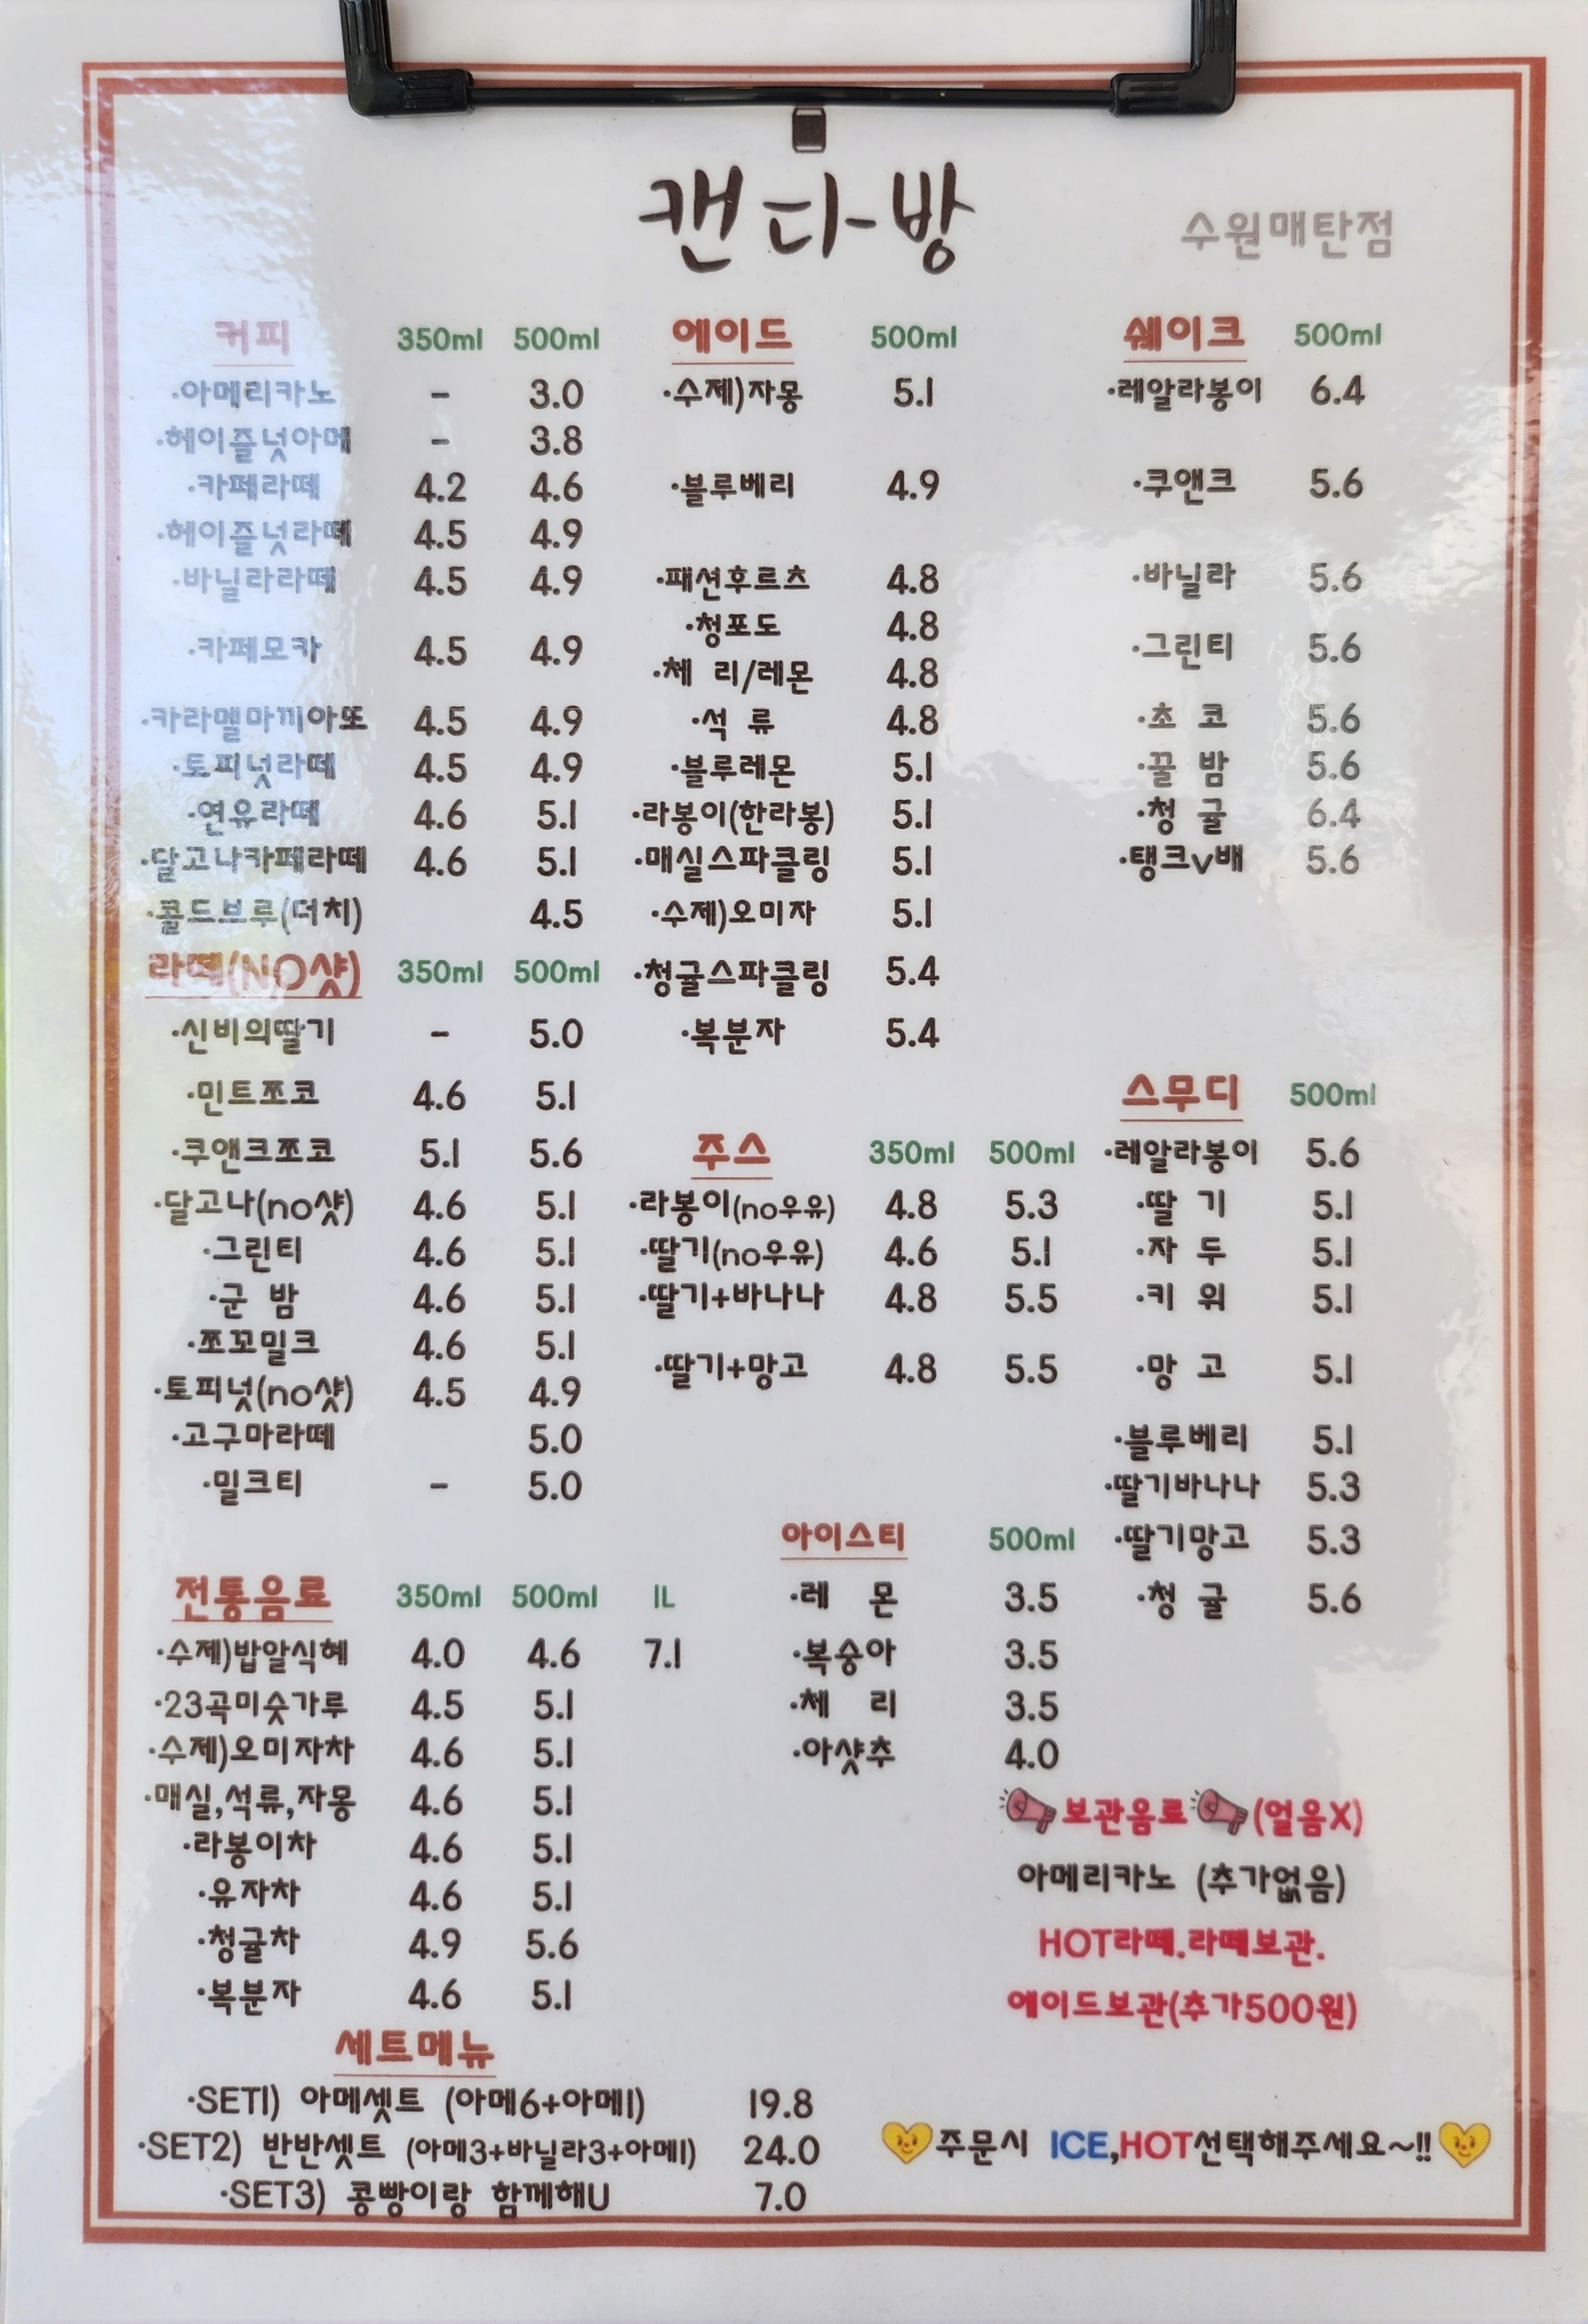 캔디-방
수원매탄점
커피 350ml 500ml
·아메리카노 - 3.0
·헤이즐넛아메 - 3.8
·카페라떼 4.2 4.6
·헤이즐넛라떼 4.5 4.9
·바닐라라떼 4.5 4.9
·카페모카 4.5 4.9
·카라멜마끼아또 4.5 4.9
·토피넛라떼 4.5 4.9
·연유라떼 4.6 5.1
·달고나카페라떼 4.6 5.1
·콜드브루(더치) 4.5
라떼(NO샷) 350ml 500ml
·신비의딸기 - 5.0
·민트쪼코 4.6 5.1
·쿠앤크쪼코 5.1 5.6
·달고나(no샷) 4.6 5.1
·그린티 4.6 5.1
·군 밤 4.6 5.1
·쪼꼬밀크 4.6 5.1
·토피넛(no샷) 4.5 4.9
·고구마라떼 5.0
·밀크티 - 5.0
전통음료 350ml 500ml 1L
·수제)밥알식혜 4.0 4.6 7.1
·23곡미숫가루 4.5 5.1
·수제)오미자차 4.6 5.1
·매실,석류,자몽 4.6 5.1
·라봉이차 4.6 5.1
·유자차 4.6 5.1
·청귤차 4.9 5.6
·복분자 4.6 5.1
에이드 500ml
·수제)자몽 5.1
·블루베리 4.9
·패션후르츠 4.8
·청포도 4.8
·체 리/레몬 4.8
·석 류 4.8
·블루레몬 5.1
·라봉이(한라봉) 5.1
·매실스파클링 5.1
·수제)오미자 5.1
·청귤스파클링 5.4
·복분자 5.4
주스 350ml 500ml
·라봉이(no우유) 4.8 5.3
·딸기(no우유) 4.6 5.1
·딸기+바나나 4.8 5.5
·딸기+망고 4.8 5.5
아이스티 500ml
·레 몬 3.5
·복숭아 3.5
·체 리 3.5
·아샷추 4.0
쉐이크 500ml
·레알라봉이 6.4
·쿠앤크 5.6
·바닐라 5.6
·그린티 5.6
·초 코 5.6
·꿀 밤 5.6
·청 귤 6.4
·탱크v배 5.6
스무디 500ml
·레알라봉이 5.6
·딸 기 5.1
·자 두 5.1
·키 위 5.1
·망 고 5.1
·블루베리 5.1
·딸기바나나 5.3
·딸기망고 5.3
·청 귤 5.6
보관음료 (얼음X)
아메리카노 (추가없음)
HOT라떼.라떼보관.
에이드보관(추가500원)
세트메뉴
·SET1) 아메셋트 (아메6+아메1) 19.8
·SET2) 반반셋트 (아메3+바닐라3+아메1) 24.0
·SET3) 콩빵이랑 함께해U 7.0
주문시 ICE,HOT선택해주세요~!!